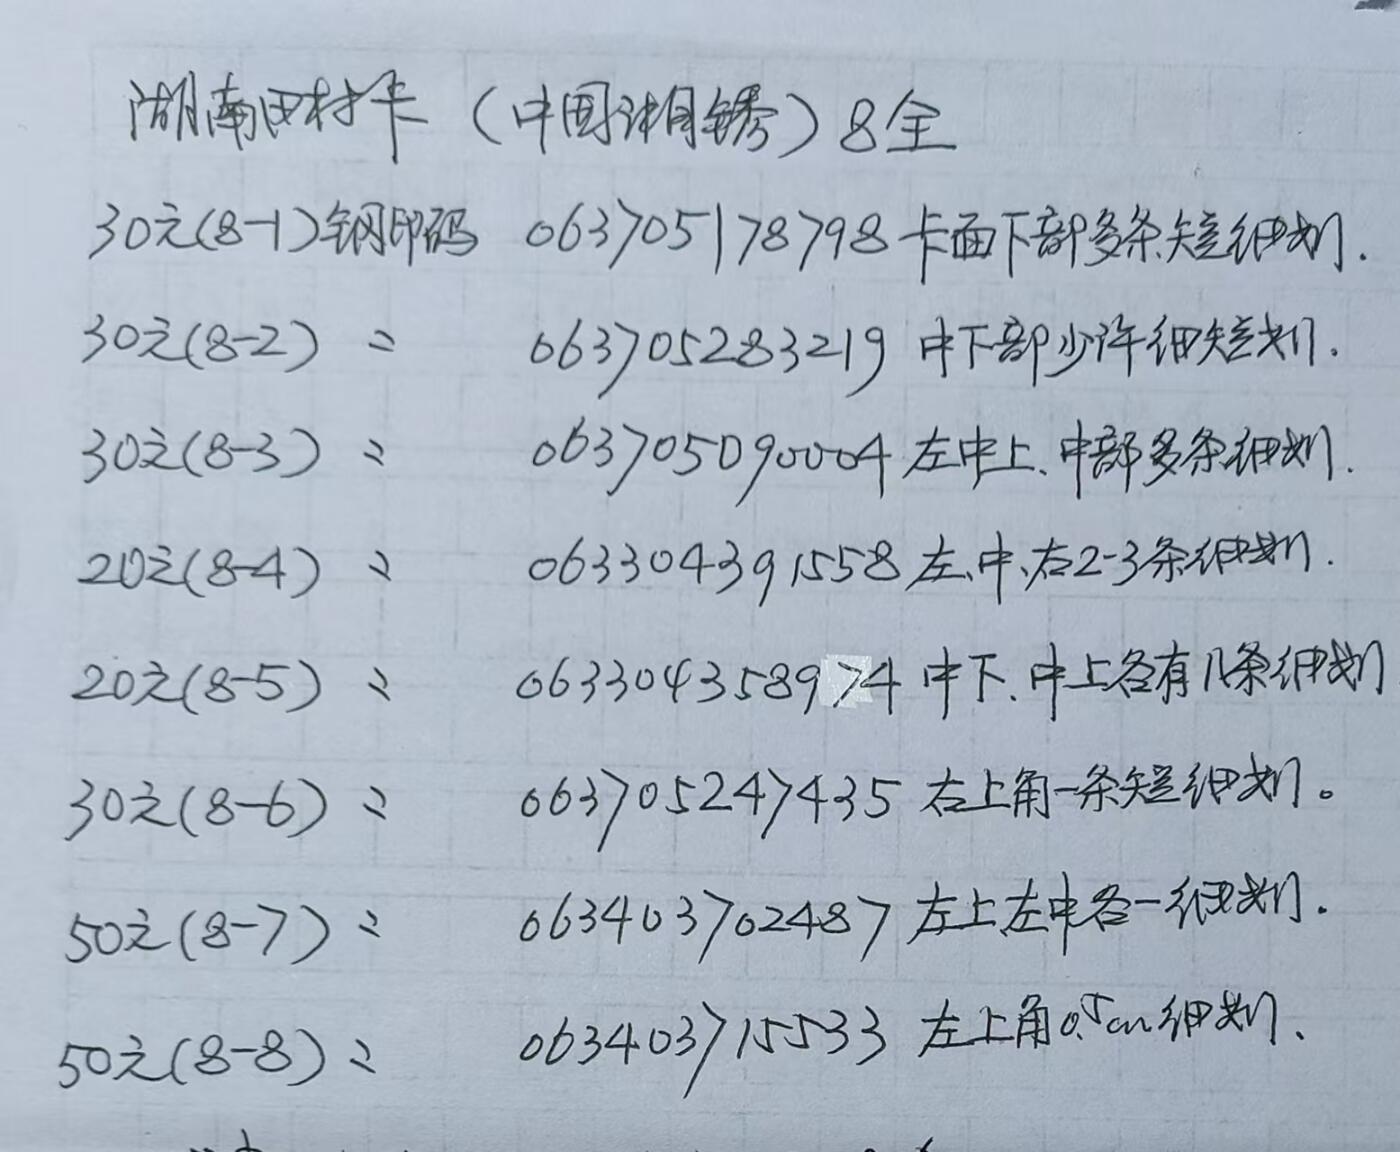 湖南田村卡（中国湘锈）8全
30元(8-1)钢印码 063705178798 卡面下部多条短细划.
30元(8-2) 〃 063705283219 中下部少许细短划.
30元(8-3) 〃 063705090004 左中上、中部多条细划.
20元(8-4) 〃 063304391558 左、中、右2-3条细划.
20元(8-5) 〃 063304358974 中下、中上各有几条细划
30元(8-6) 〃 063705247435 右上角一条短细划。
50元(8-7) 〃 063403702487 左上、左中各一细划.
50元(8-8) 〃 063403715533 左上角0.5cm细划、